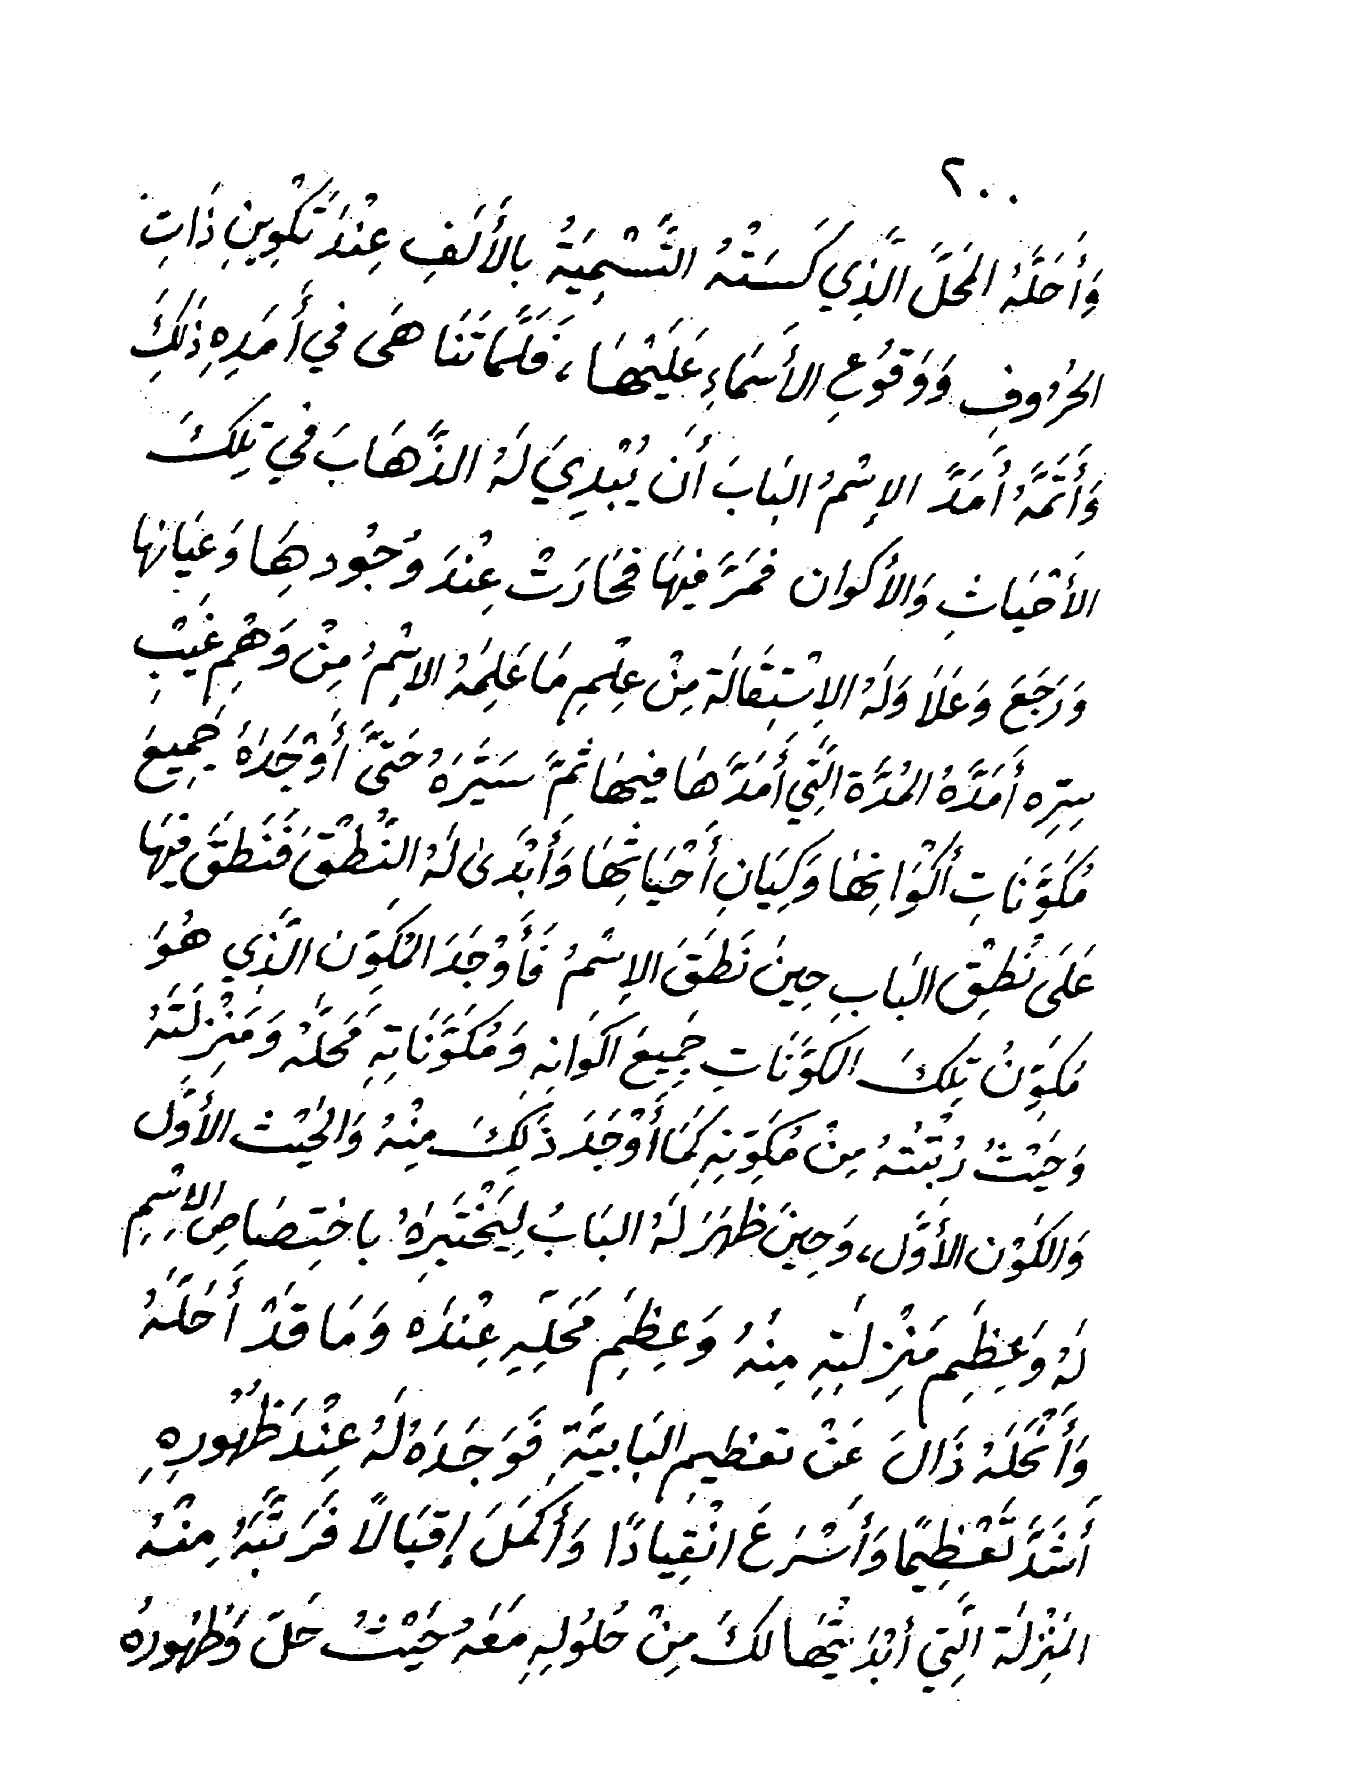 ٢٠٠
وَأَحَلَّهُ المَحَلَّ الَّذِي كَسَتْهُ التَّسْمِيَةُ بالأَلَفِ عِنْدَ تَكْوِينِ ذَاتِ
الحُرُوفِ وَوَقُوعِ الأَسَمَاءِ عَلَيْهَا، فَلَمَّا تَنَاهَى في أَمَدِهِ ذَلِكَ
وَأَتَمَّهُ أَمَدَّ الإِسْمُ البَابَ أَن يُبْدِيَ لَهُ الذَّهَابَ في تِلكَ
الأَحْيَاثِ وَالأَكوَان فَمَرَّ فِيهَا فَحَارَتْ عِنْدَ وُجُودِهَا وَعِيَانِهَا
وَرَجَعَ وَعَلَا وَلَهُ الاِسْتِقَالَة مِنْ عِلْمِ مَا عَلِمَهُ الاِسْمُ مِنْ وَهْمِ غَيْبِ
سِرِّه أَمَدَّهُ المُدَّة الَّتِي أَمَدَّهَا فِيهَا ثُمَّ سَيَّرَهُ حَتَّى أَوْجَدَهُ جَمِيعَ
مُكَوَّنَاتِ أَكْوَانِهَا وَكِيَانِ أَحْيَاثِهَا وَأَبْدَى لَهُ النُّطْقَ فَنَطَقَ فِيهَا
عَلَى نُطْقِ البَابِ حِينَ نَطَقَ الاِسْمُ فَأَوْجَدَ المُكَوِّن الَّذِي هُوَ
مُكَوِّنُ تِلكَ الكَوَّنَاتِ جَمِيعَ اَكوَانِهِ وَمُكَوَّنَاتِهِ مَحَلَّهُ وَمَنْزِلَتَهُ
وَحَيْثُ رُتْبَتُهُ مِنْ مُكَوِّنِهِ كَمَا أَوْجَدَ ذَلِكَ مِنْهُ وَالحَيْث الأَوَّل
وَالكَوْن الأَوَّل، وَحِينَ ظَهَرَ لَهُ البَابُ لِيَخْتَبِرَهُ باختِصَاصِ الاِسْمِ
لَهُ وَعِظَمِ مَنْزِلَتِهِ مِنْهُ وَعِظَمِ مَحَلِّهِ عِنْدَه وَمَا قَدْ أَحَلَّهُ
وَأَنْحَلَهُ ذَالَ عَنْ تعظيم البَابيَّةِ فَوَجَدَهُ لَهُ عِنْدَ ظُهُورِهِ
أَشَدَّ تَعْظِيمًا وَأَسْرَعَ انْقِيادًا وَأَكمَلَ إِقبَالاً فَرَتَّبَهُ مِنْهُ
المَنْزِلَة الَّتِي أَبْدَيْتُهَا لكَ مِنْ حُلُولِهِ مَعَهُ حَيْثُ حَلّ وَظُهُورهُ